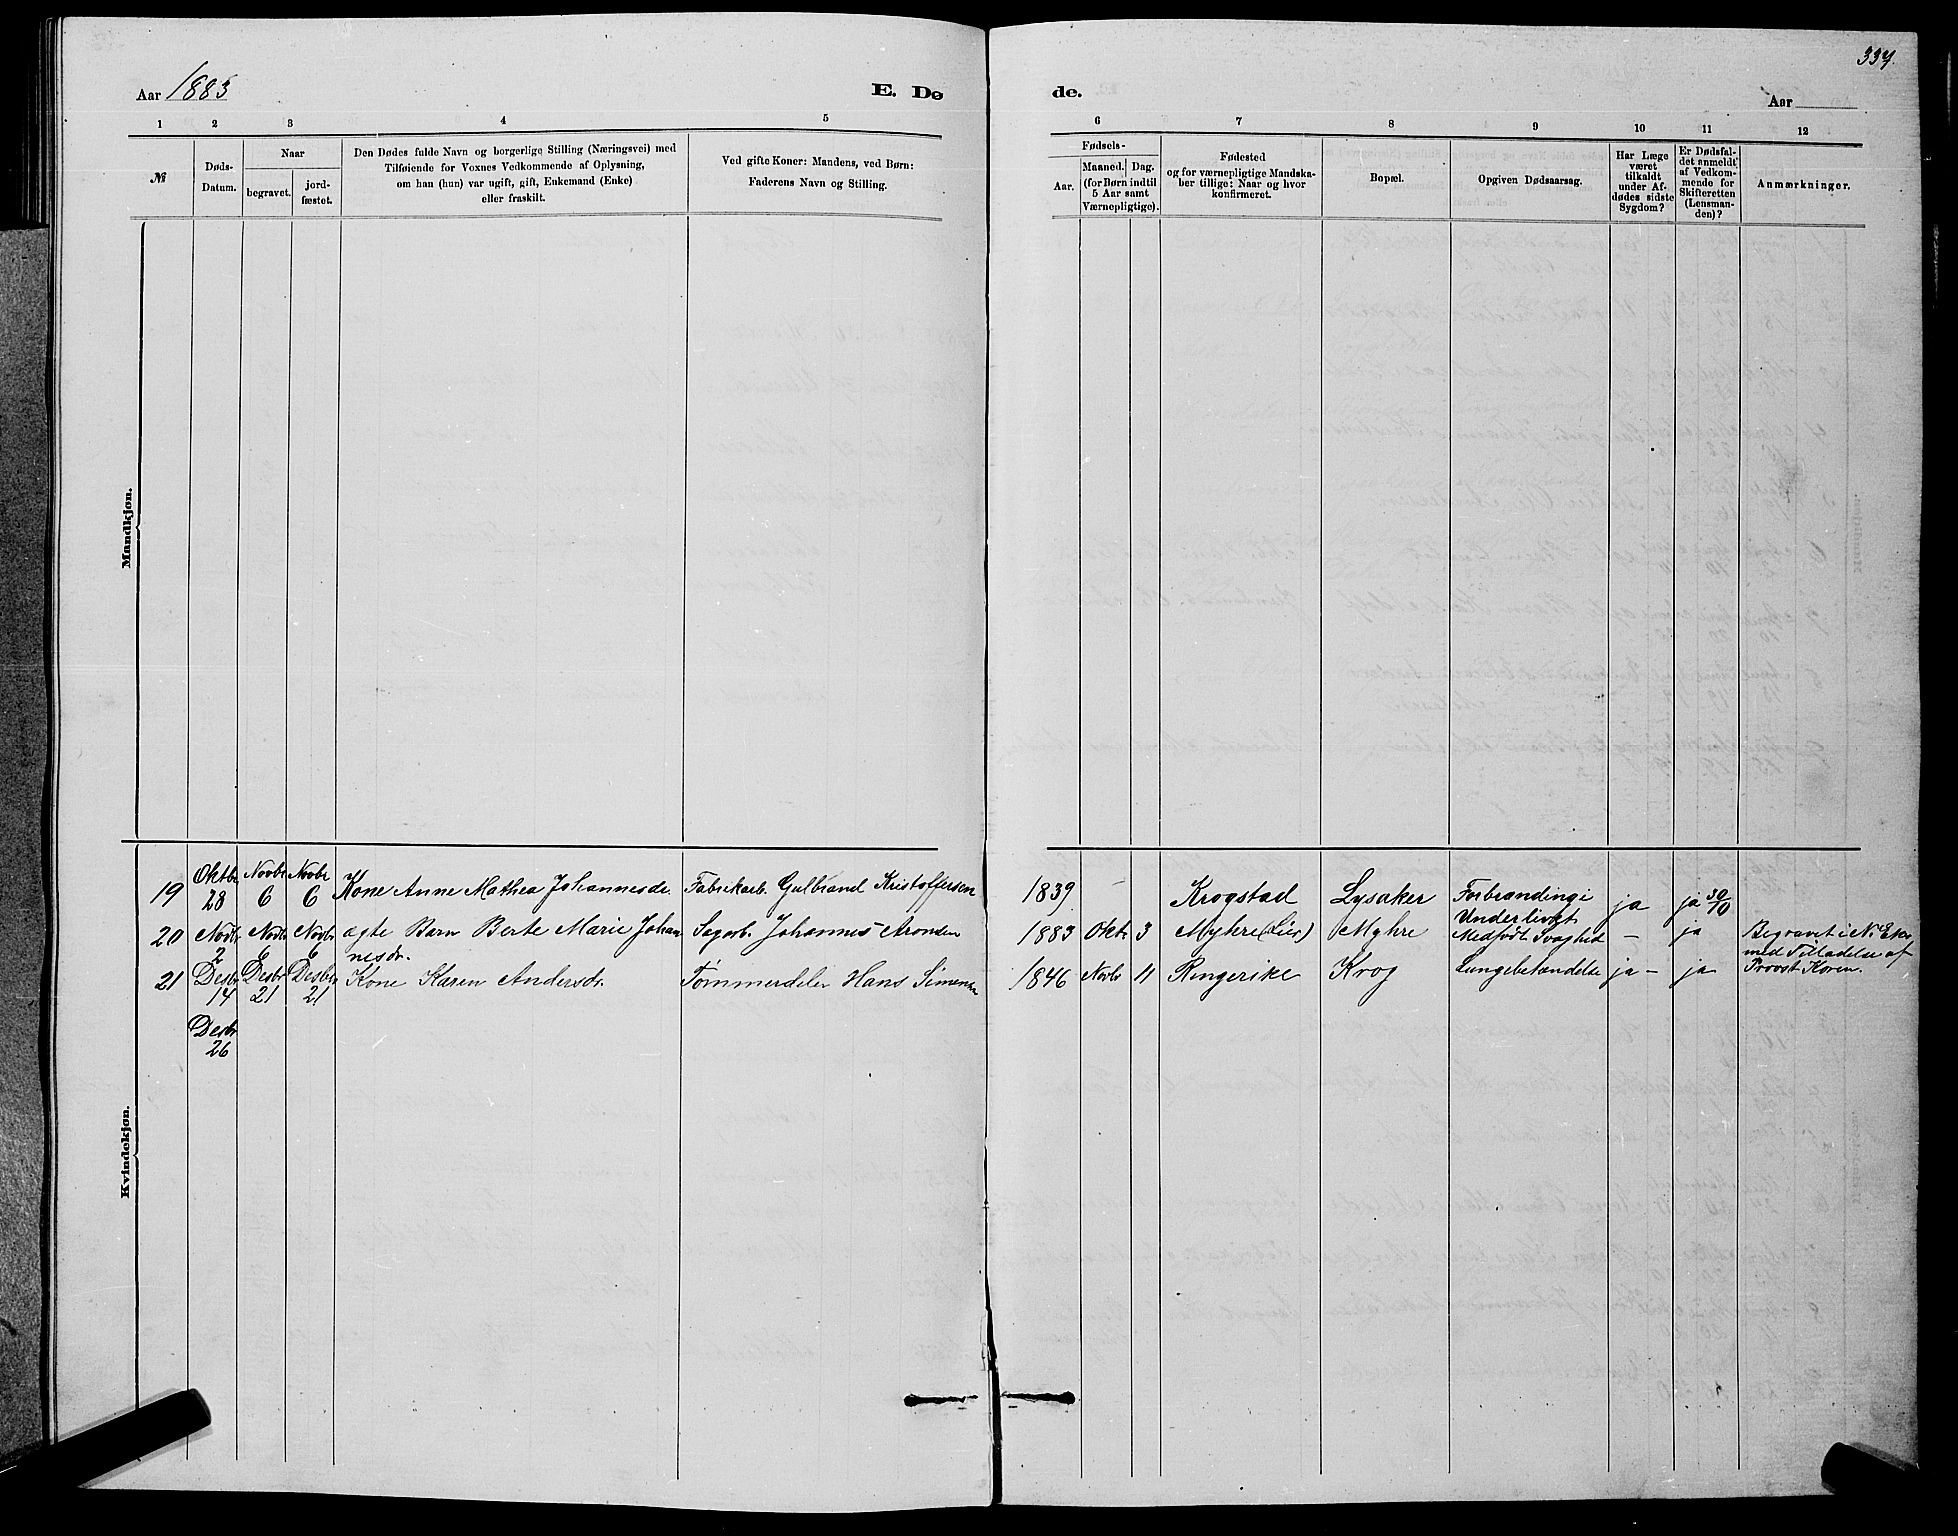 337.
Aar 1883
E. Dø
de.
Aar
1 2 3 4 5
6 7 8 9 10 11 12
№
Døds-
Datum.
Naar
begravet.
jord-
fæstet.
Den Dødes fulde Navn og borgerlige Stilling (Næringsvei) med
Tilføiende for Voxnes Vedkommende af Oplysning,
om han (hun) var ugift, gift, Enkemand (Enke)
eller fraskilt.
Ved gifte Koner: Mandens, ved Børn:
Faderens Navn og Stilling.
Fødsels-
Aar.
Maaned. Dag.
(for Børn indtil
5 Aar samt
Værnepligtige).
Fødested
og for værnepligtige Mandska-
ber tillige: Naar og hvor
konfirmeret.
Bopæl.
Opgiven Dødsaarsag.
Har Læge
været
tilkaldt
under Af-
dødes sidste
Sygdom?
Er Dødsfal-
det anmeldt
af Vedkom-
mende for
Skifteretten
(Lensman-
den)?
Anmærkninger.
Mandkjøn.
Kvindekjøn.
19 Oktbr 28 Novbr 6 Novbr 6 Kone Anne Mathea Johannesdr. Fabrikarb. Gulbrand Kristoffersen 1839 - Krogstad Lysaker Forbrænding i Underlivet ja ja 30/10
20 Novbr 2 Novbr Novbr ægte Barn Berte Marie Johan
nesdr. Sagarb. Johannes Aronsen 1883 Oktr 3 Myhre (Lier) Myhre Medfødt Svaghed - ja Begravet i N. Eker
med Tilladelse af
Provst Koren.
21 Desbr 14 Desbr 21 Desbr 21 Kone Karen Andersdr. Tømmerdeler Hans Simensen 1846 Novbr 11 Ringerike Krog Lungebetændelse ja - ja
Desbr
26